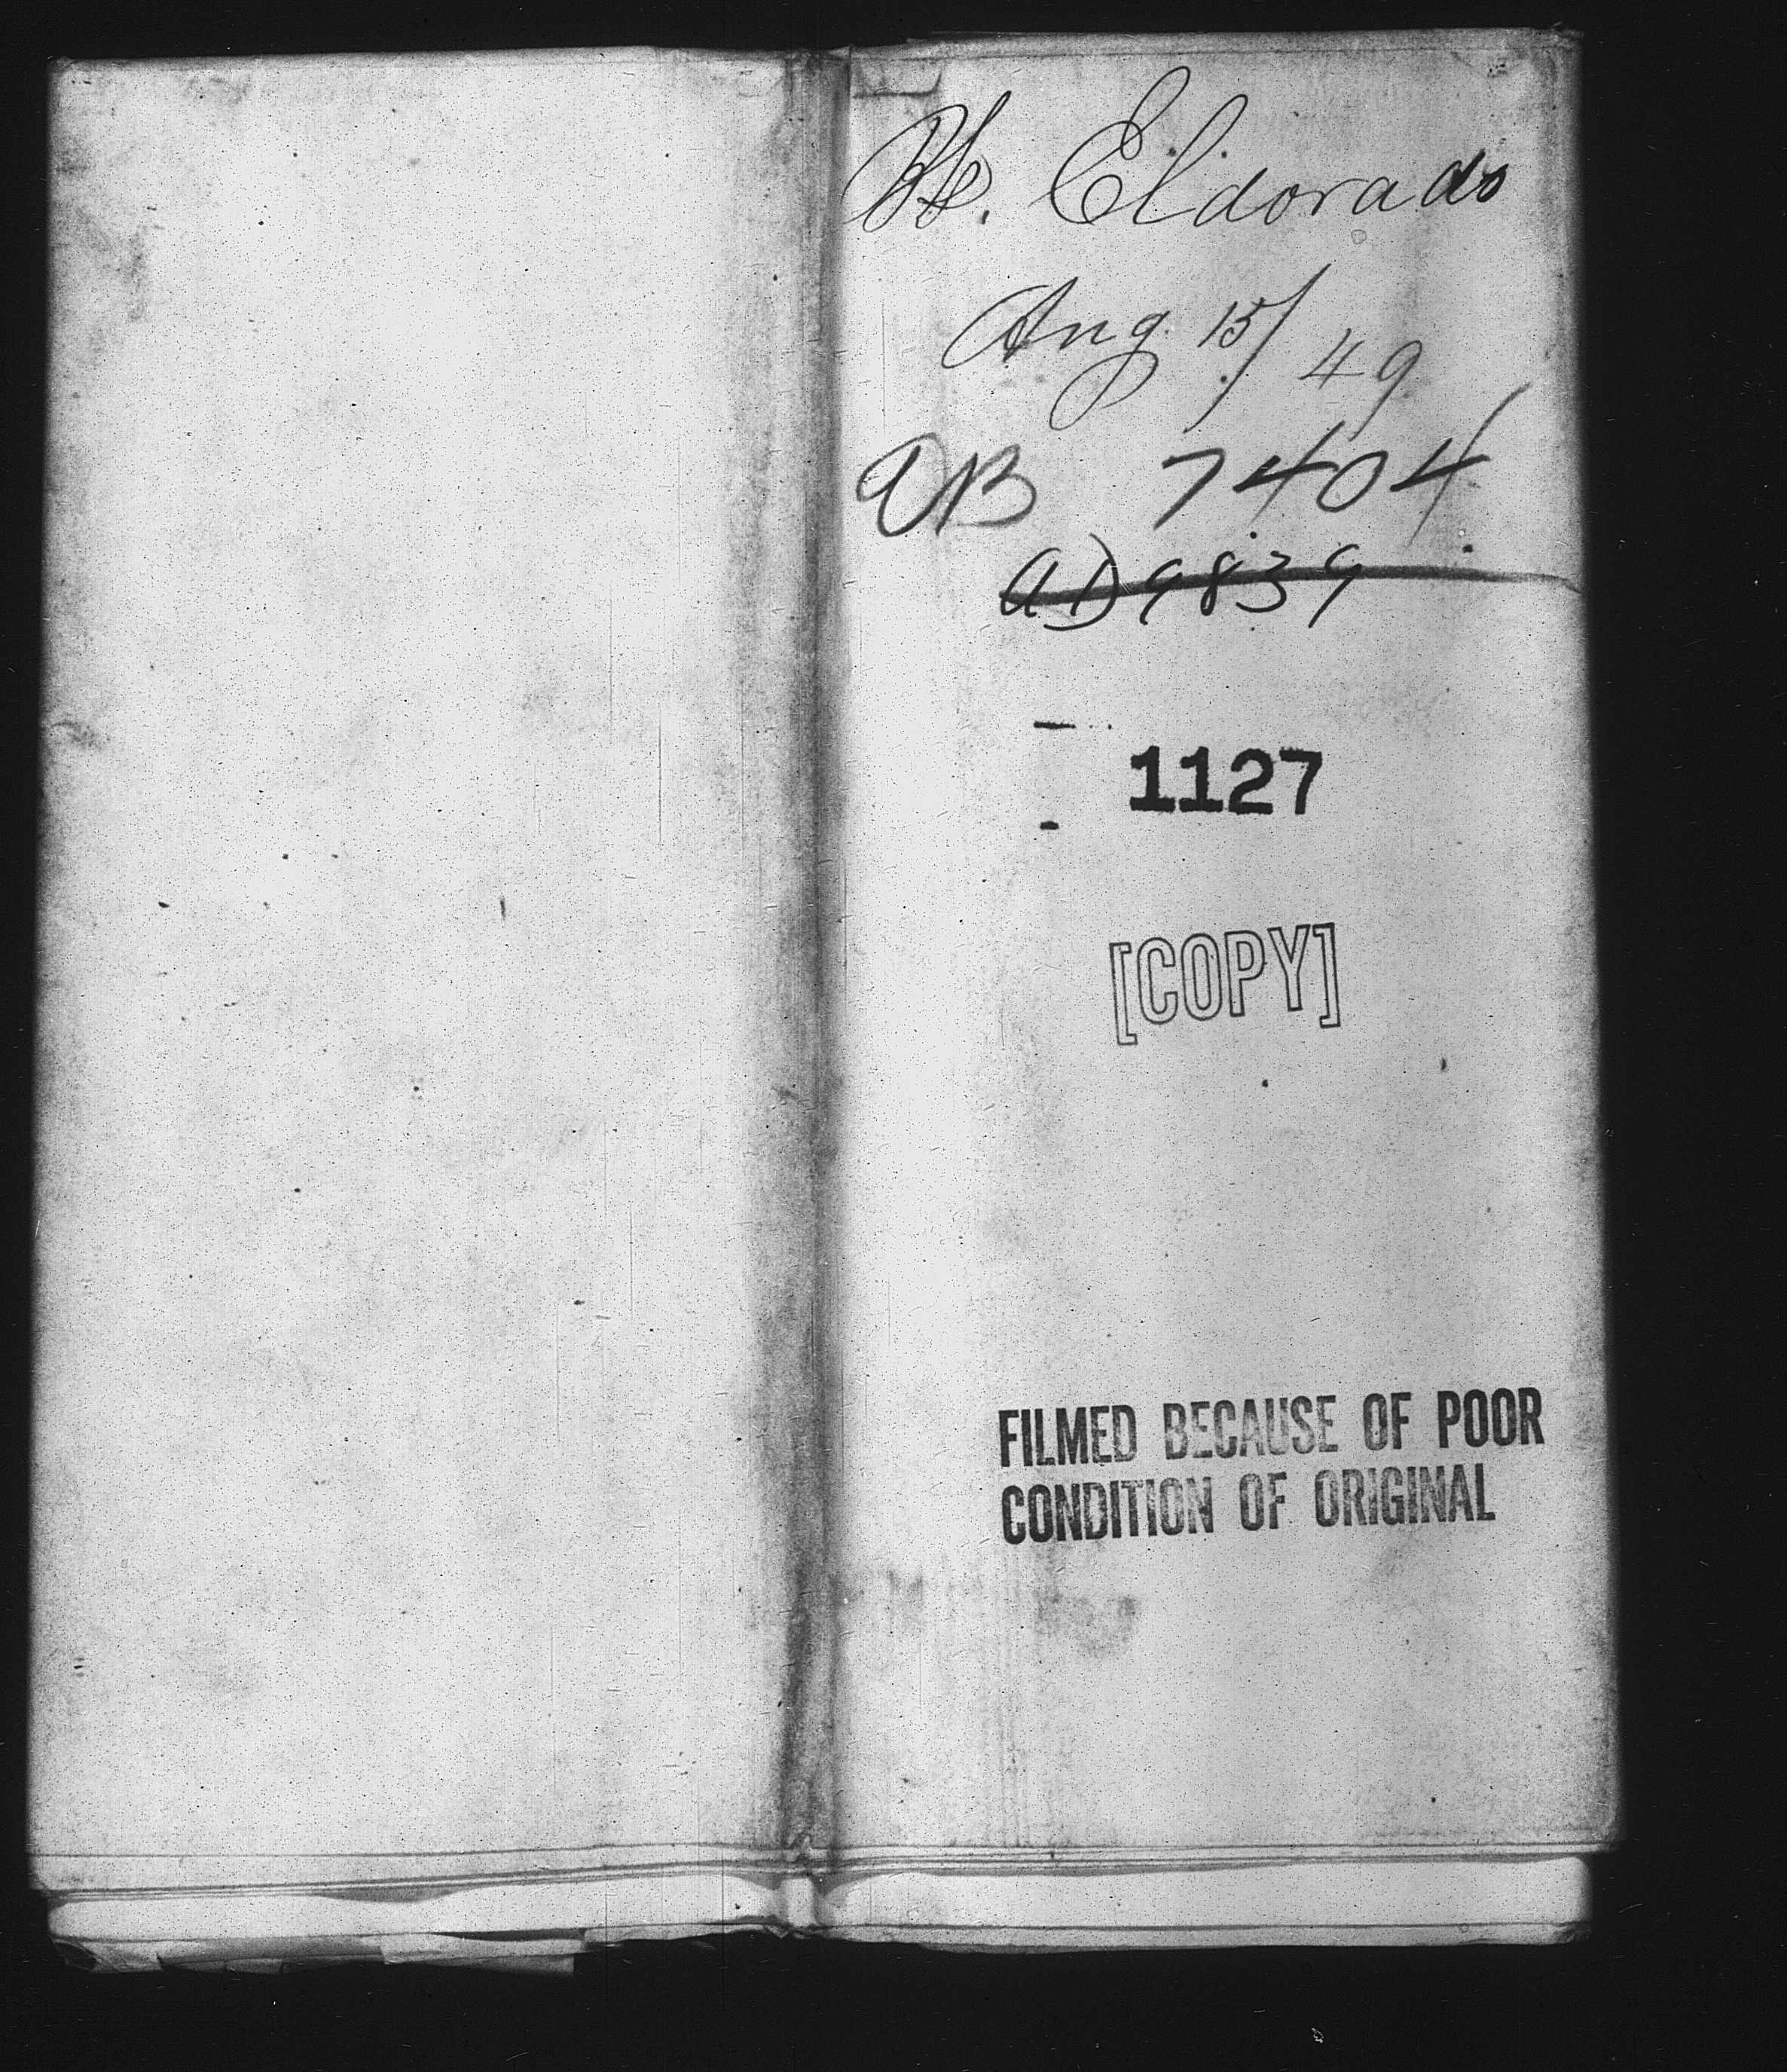 Bk. Eldorado
Aug 15/49
AB 7404
AD9839
1127
[COPY]
FILMED BECAUSE OF POOR
CONDITION OF ORIGINAL